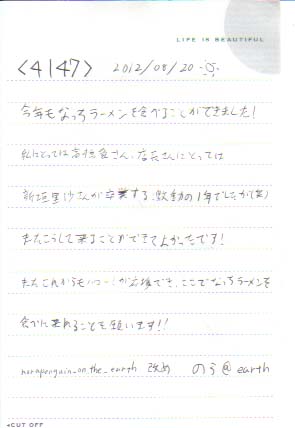 LIFE IS BEAUTIFUL
<4147> 2012/08/20
今年もなっちラーメンを食べることができました!
私にとっては高橋愛さん、店長さんにとっては
新垣里沙さんが卒業する、激動の1年でしたが(笑)
またこうして来ることができてよかったです!
またこれからもハロー!が応援でき、ここでなっちラーメンを
食べに来れることを願います!!
norapenguin_on_the_earth 改め のら@earth
CUT OFF